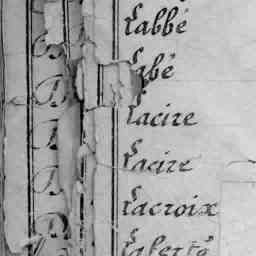 Labbé
Labé
Lacire
Lacire
Lacroix
Laferté